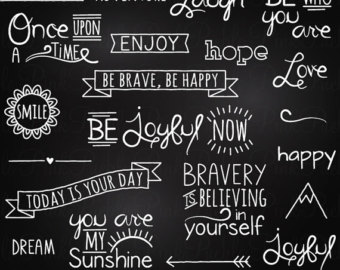 ADVENTURE
Laugh
BE WHO
you are
Once UPON
A TIME
ENJOY
hope
Love
BE BRAVE, BE HAPPY
SMILE
BE Joyful NOW
happy
TODAY IS YOUR DAY
BRAVERY
IS BELIEVING
in
yourself
you are
MY
Sunshine
DREAM
Joyful